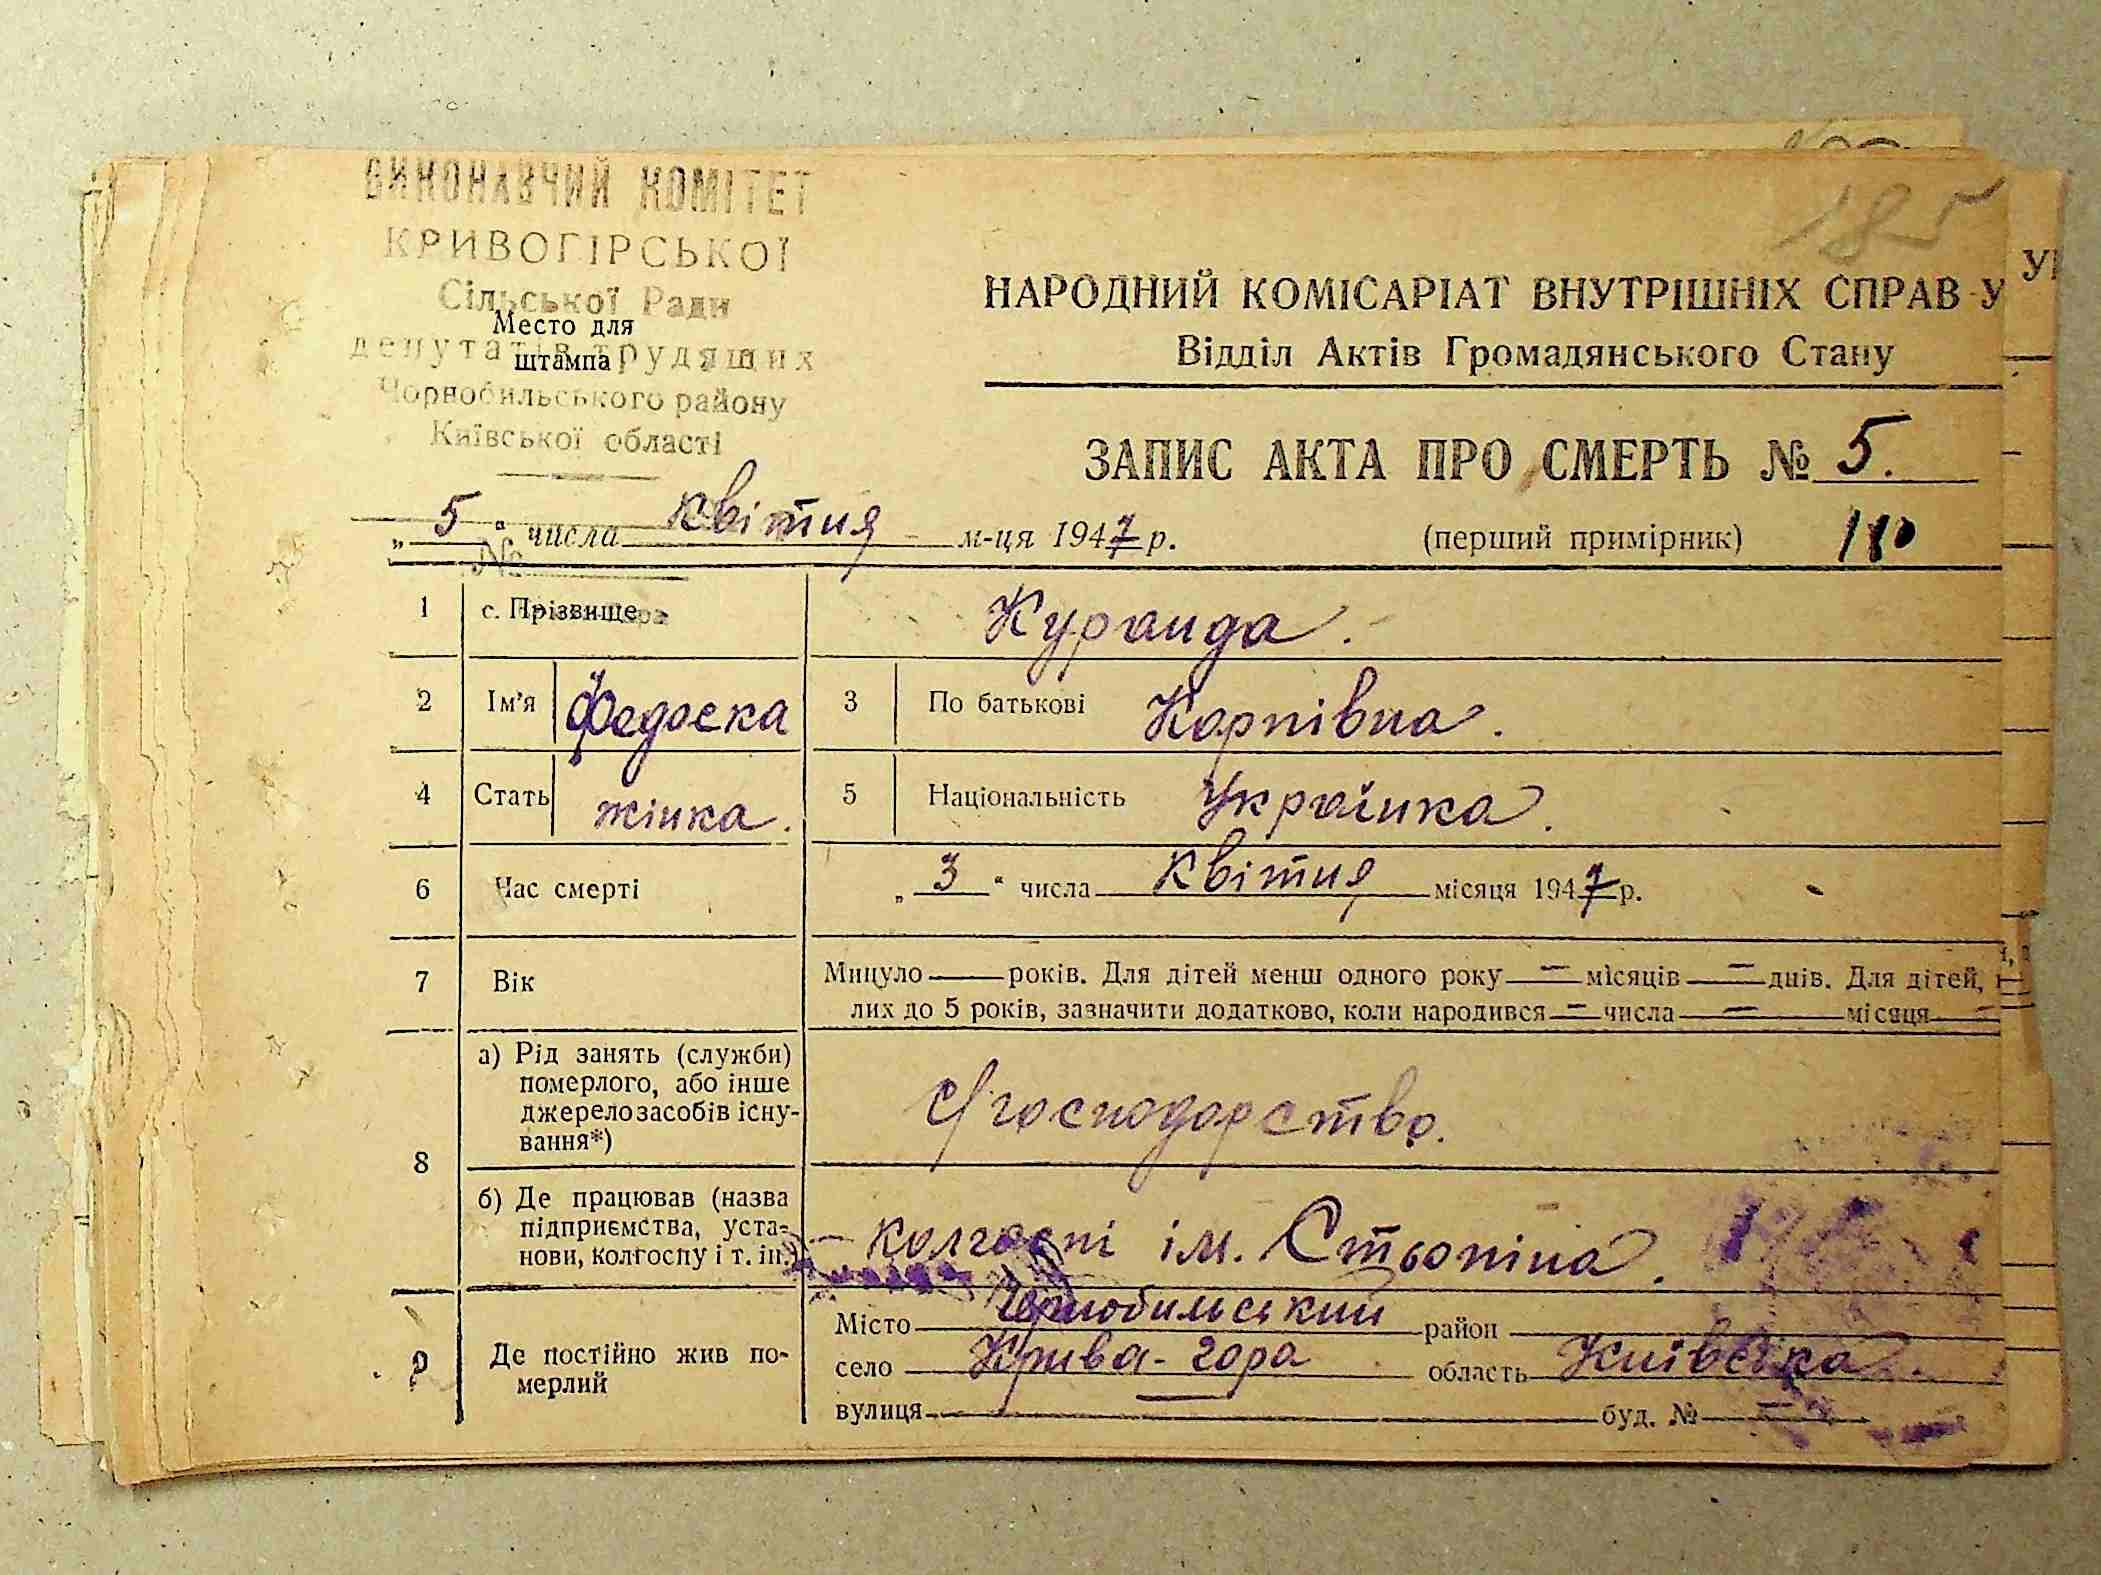 185
ВИКОНАВЧИЙ КОМІТЕТ
КРИВОГІРСЬКОЇ
Сільської Ради
Место для
депутатів трудящих
штампа
Чорнобильського району
Київської області
НАРОДНИЙ КОМІСАРІАТ ВНУТРІШНІХ СПРАВ У
Відділ Актів Громадянського Стану
ЗАПИС АКТА ПРО СМЕРТЬ № 5.
„5“ числа квітня м-ця 1947 р. (перший примірник) 180
№
1 с. Прізвище Куранда.
2 Ім'я Федоска 3 По батькові Карпівна.
4 Стать жінка. 5 Національність Українка.
6 Час смерті „3“ числа квітня місяця 1947 р.
7 Вік Минуло — років. Для дітей менш одного року — місяців — днів. Для дітей,
лих до 5 років, зазначити додатково, коли народився — числа — місяця —
8 а) Рід занять (служби) померлого, або інше джерело засобів існування*) с/господарство.
б) Де працював (назва підприємства, установи, колгоспу і т. ін.) колгоспі ім. Стьопіна.
9 Де постійно жив померлий
Місто Чорнобильський район
село Крива-гора область Київська
вулиця — буд. № —